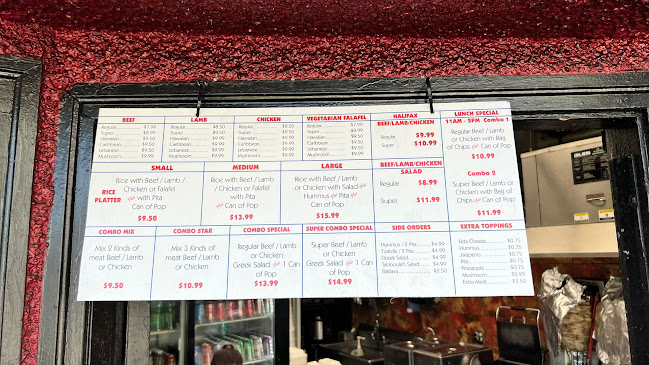 BEEF
Regular $7.99
Super $8.99
Hawaiian $9.50
Caribbean $9.50
Lebanese $9.50
Mushroom $9.99
LAMB
Regular $8.50
Super $9.50
Hawaiian $9.99
Caribbean $9.99
Lebanese $9.99
Mushroom $9.99
CHICKEN
Regular $8.50
Super $9.50
Hawaiian $9.99
Caribbean $9.99
Lebanese $9.99
Mushroom $9.99
VEGETARIAN FALAFEL
Regular $7.99
Super
Hawaiian
Caribbean
Lebanese
Mushroom
HALIFAX
BEEF/LAMB/CHICKEN
Regular $9.99
Super $10.99
LUNCH SPECIAL
11AM - 5PM Combo 1
Regular Beef / Lamb
or Chicken with Bag
of Chips and Can of Pop
$10.99
Combo 2
Super Beef / Lamb or
Chicken with Bag of
Chips and Can of Pop
$11.99
RICE
PLATTER
SMALL
Rice with Beef / Lamb /
Chicken or Falafel
and with Pita
and Can of Pop
$9.50
MEDIUM
Rice with Beef / Lamb
/ Chicken or Falafel
with Pita
and Can of Pop
$13.99
LARGE
Rice with Beef / Lamb
or Chicken with Salad and
Hummus and Pita and
Can of Pop
$15.99
BEEF/LAMB/CHICKEN
SALAD
Regular $8.99
Super $11.99
COMBO MIX
Mix 2 Kinds of
meat Beef / Lamb
or Chicken
$9.50
COMBO STAR
Mix 3 Kinds of
meat Beef / Lamb
or Chicken
$10.99
COMBO SPECIAL
Regular Beef / Lamb
or Chicken
Greek Salad and 1 Can
of Pop
$13.99
SUPER COMBO SPECIAL
Super Beef / Lamb
or Chicken
Greek Salad and 1 Can
of Pop
$14.99
SIDE ORDERS
Hummus / 2 Pita $4.99
Tzatziki / 2 Pita $4.99
Greek Salad $4.99
Tabbouleh Salad $4.99
Baklava $2.50
EXTRA TOPPINGS
Feta Cheese $0.75
Hummus $0.75
Jalapeno $0.75
Pita $0.75
Pineapple $0.75
Mushroom $0.75
Extra Meat $2.50